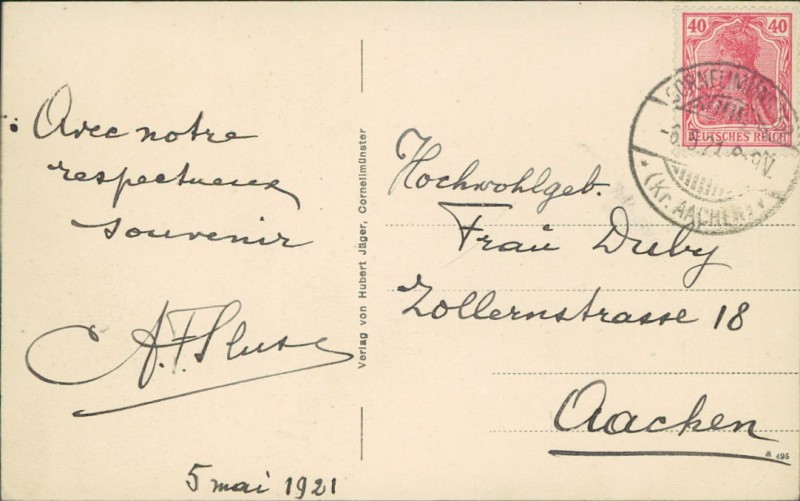 Avec notre
respectueux
souvenir
A.F. Sluse
5 mai 1921
Verlag von Hubert Jäger, Cornelimünster
40 40
DEUTSCHES REICH
CORNELIMÜN
(Kr. AACHEN)
Hochwohlgeb.
Frau Duby
Zollernstrasse 18
Aachen
495